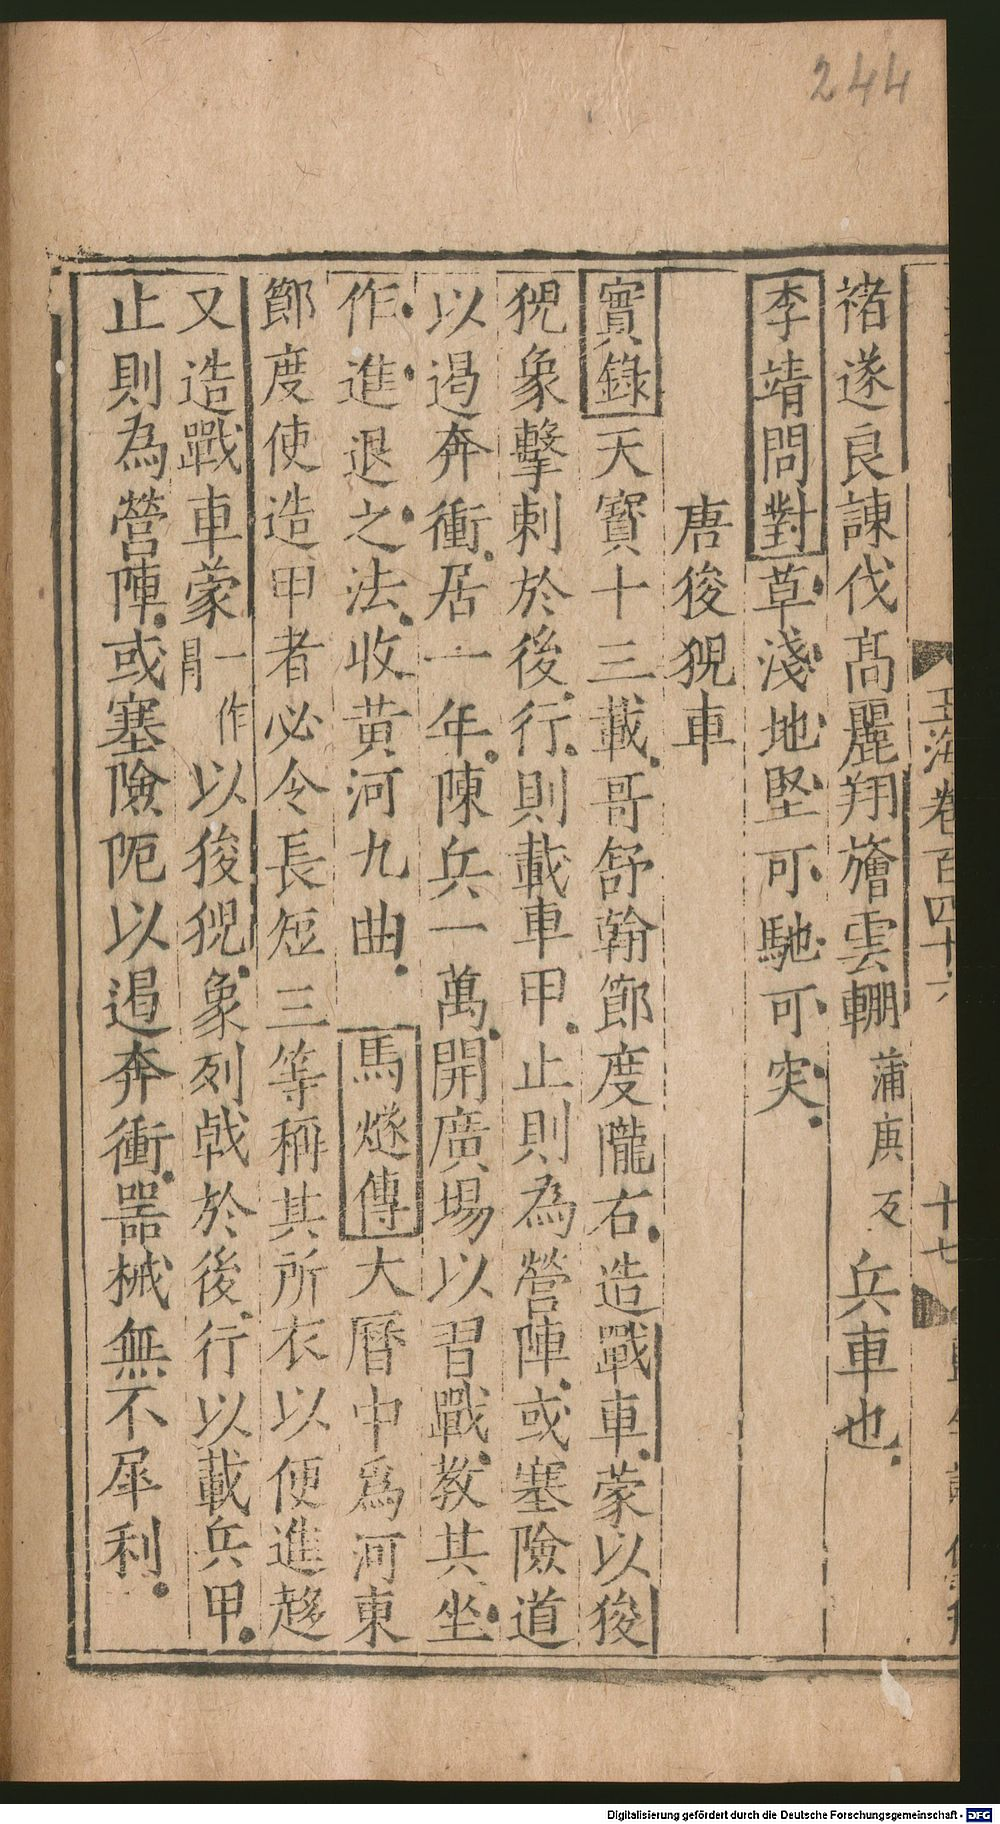 244
玉海卷百四十六 十七
褚遂良諫伐髙麗翔旝雲輣蒲庚反兵車也
李靖問對草淺地堅可馳可突
唐狻猊車
實錄天寳十三載哥舒翰節度隴右造戰車蒙以狻
猊象擊刺於後行則載車甲止則為營陣或塞險道
以遏奔衝居一年陳兵一萬開廣場以習戰教其坐
作進退之法收黄河九曲 馬燧傳大曆中爲河東
節度使造甲者必令長短三等稱其所衣以便進趍
又造戰車蒙一作冐以狻猊象列戟於後行以載兵甲
止則為營陣或塞險阨以遏奔衝器械無不犀利
Digitalisierung gefördert durch die Deutsche Forschungsgemeinschaft - DFG